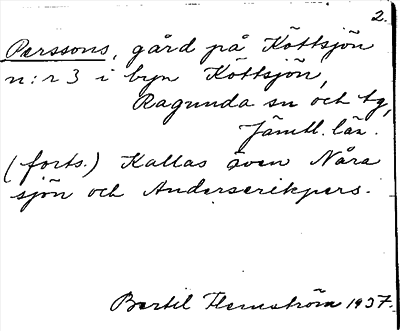 2.
Perssons, gård på Köttsjön
n:r 3 i byn Köttsjön,
Ragunda sn och tg,
Jämtl. län.
(forts.) Kallas även Nära
sjön och Anderserikpers.
Bertil Flemström 1937.